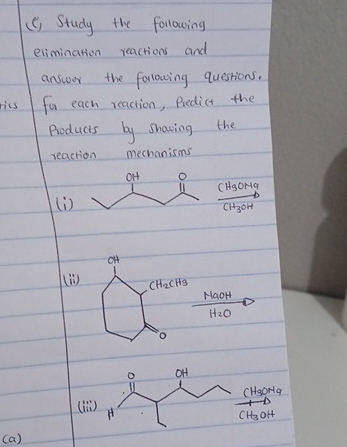 (c) Study the following
elimination reactions and
answer the following questions.
tics
For each reaction, Predict the
Products by showing the
reaction mechanisms
OH
O
CH3ONa
(i)
CH3OH
OH
(ii)
CH2CH3
NaOH
H2O
O
O
OH
CH3ONa
(iii)
H
CH3OH
(a)